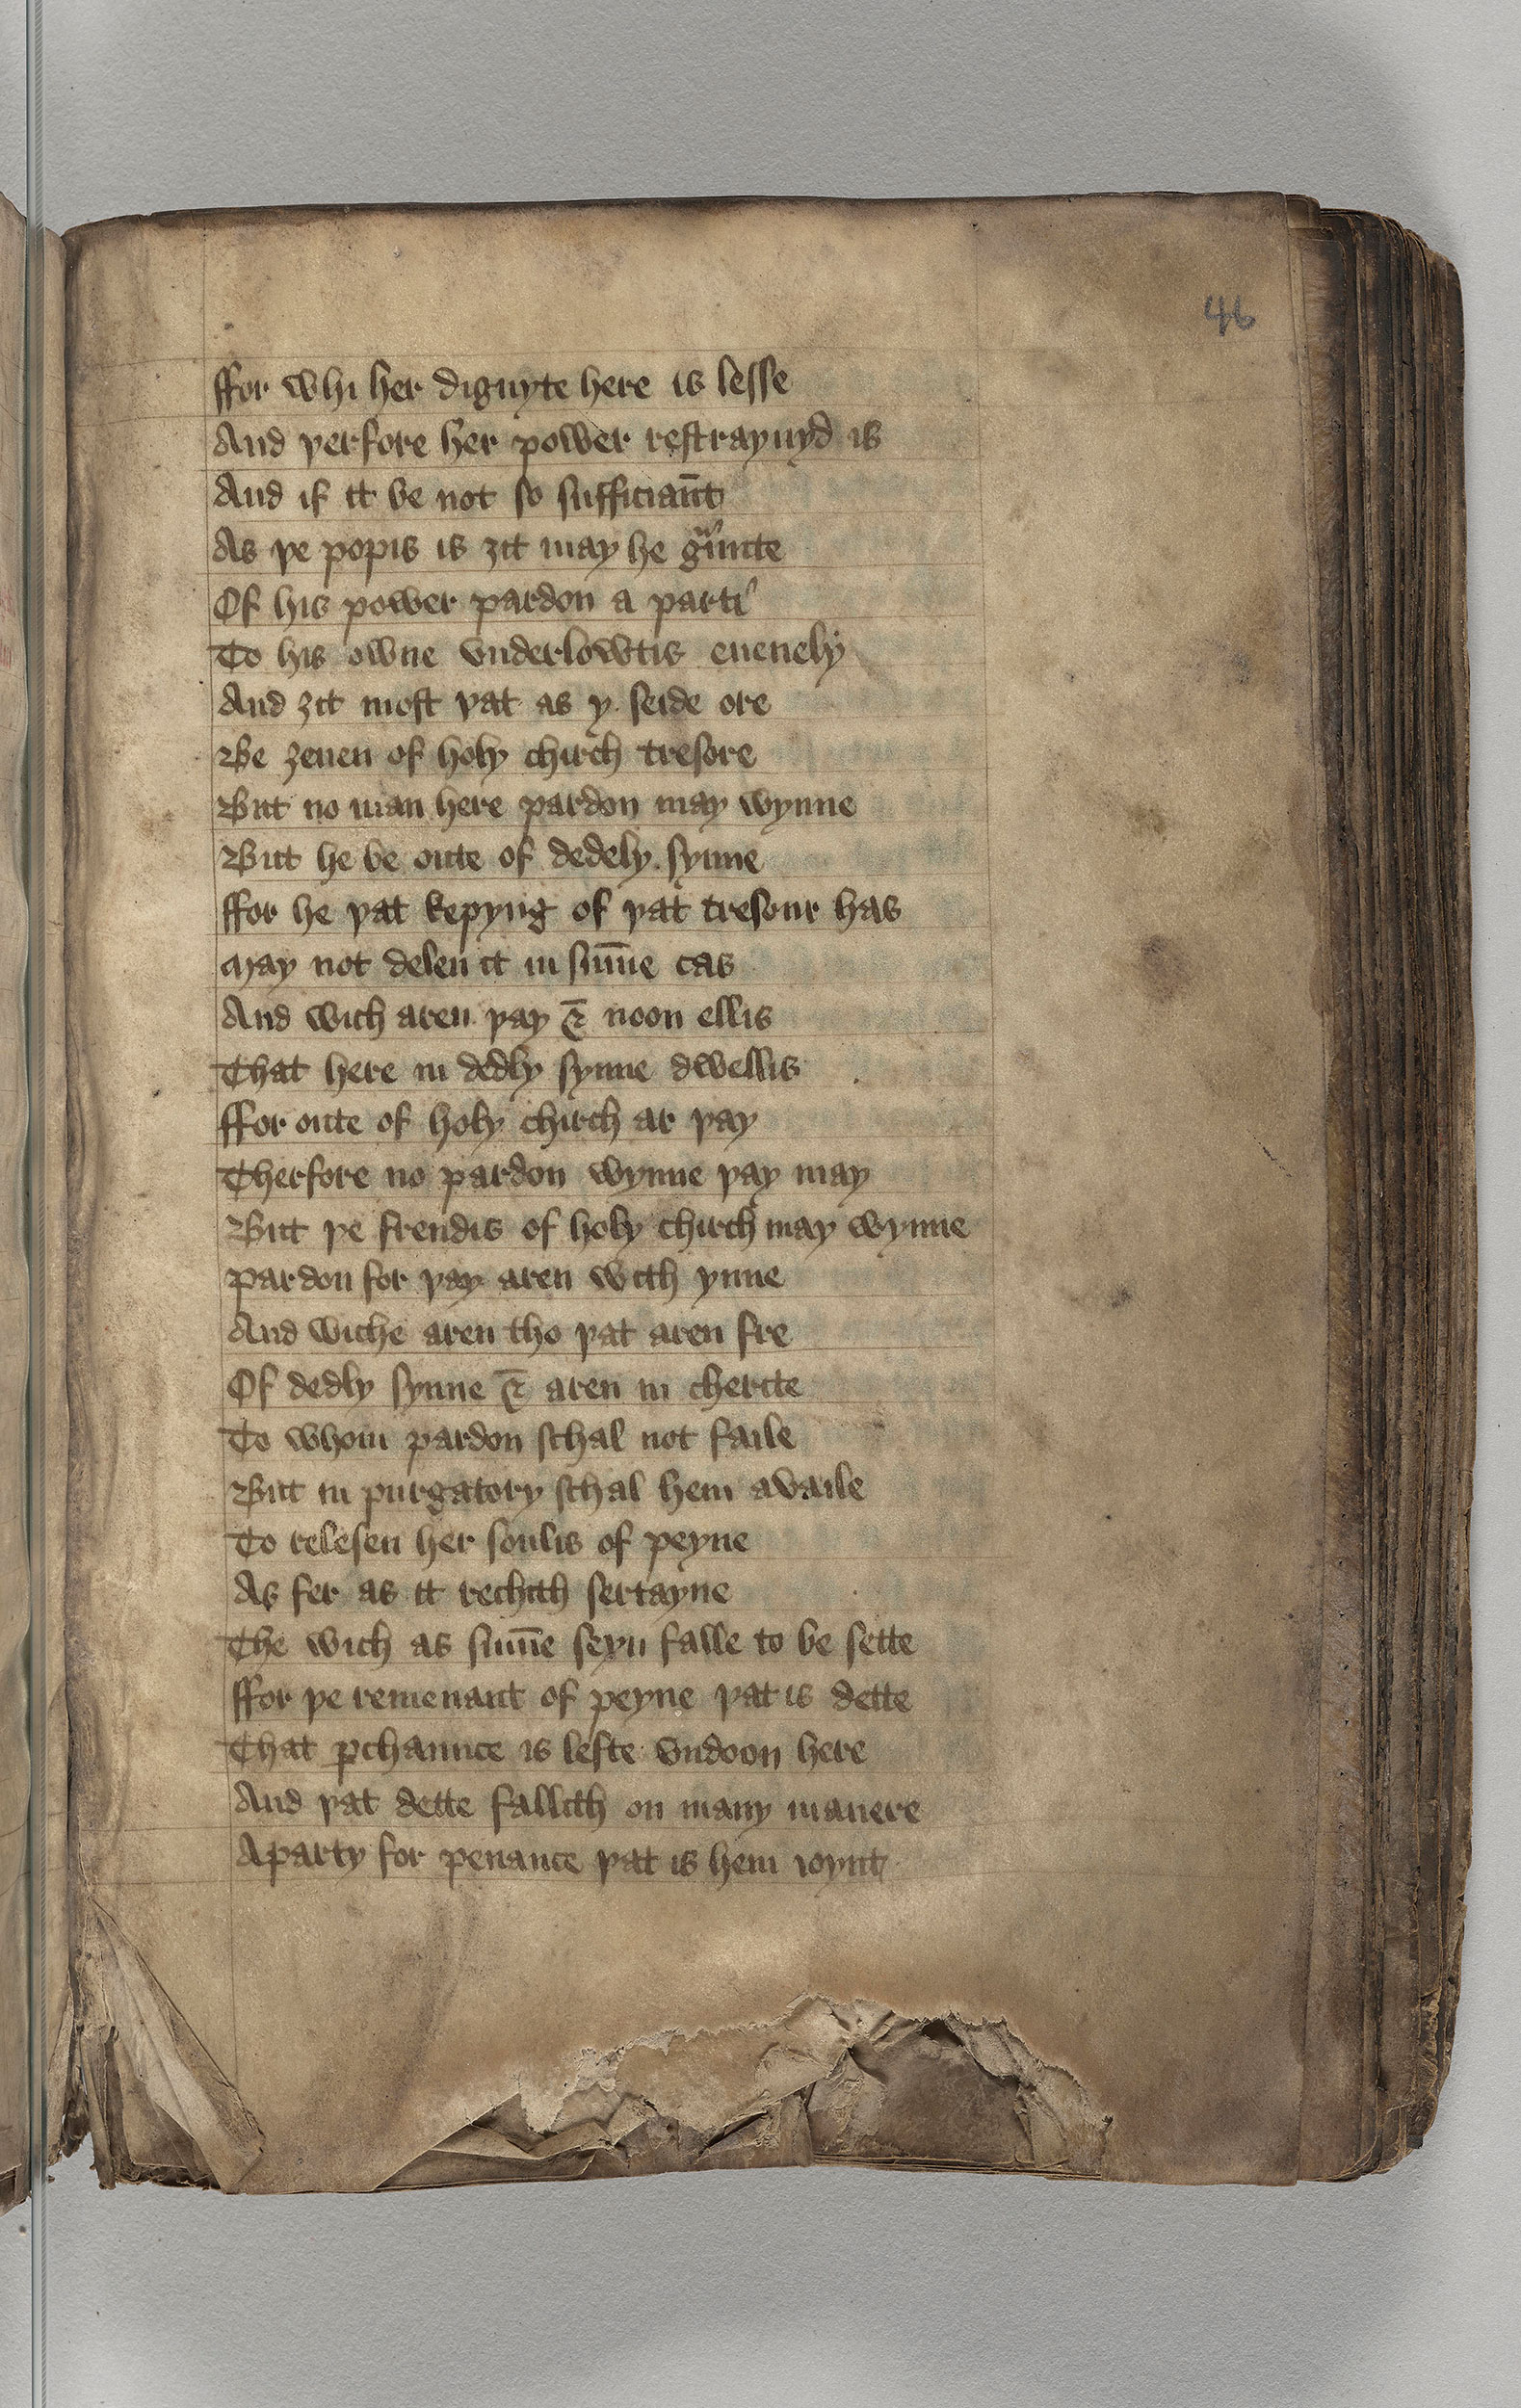 46
ffor whi her dignyte here is lesse
And þerfore her power restraynyd is
And if it be not so sufficiaūt
As þe popis is ȝit may he gͣunte
Of his power pardon a parti
To his owne vnderlowtis euenely
And ȝit most þat as y seide ore
Be ȝeuen of holy chirch tresore
But no man here pardon may wynne
But he be oute of dedely synne
ffor he þat kepyng of þat tresour has
May not delen it in su̅me cas
And wich aren þay & noon ellis
That here in dedly synne dwellis
ffor oute of holy chirch ar þay
Therfore no pardon wynne þay may
But þe frendis of holy chirch may wynne
pardon for þay aren with ynne
And wiche aren tho þat aren fre
Of dedly synne & aren in cherite
To whom pardon schal not faile
But in purgatory schal hem availe
To relesen her soulis of peyne
As fer as it rechith sertayne
The wich as su̅me seyn falle to be sette
ffor þe remenant of peyne þat is dette
That ꝑchaunce is lefte vndoon here
And þat dette fallith on many manere
A party for penance þat is hem ioynt